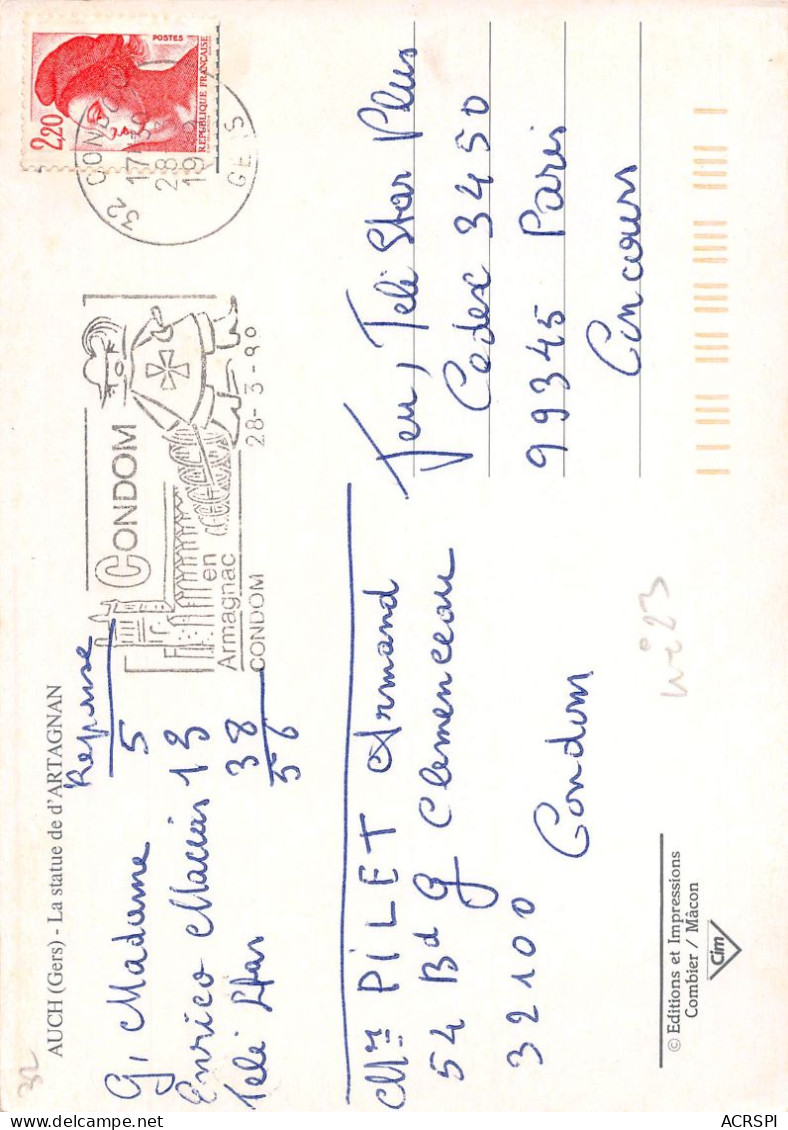 AUCH (Gers) - La statue de d'ARTAGNAN
Reponse
G, Madame 5
Enrico Macias 13
Télé Star 38
56
Mr PILET Armand
54 Bd G Clemenceau
32100
Condom
© Editions et Impressions
Combier / Mâcon
Cim
CONDOM
en
Armagnac
CONDOM 28-3-89
32 CONDOM
17
28
19
GERS
2,20
POSTES
REPUBLIQUE FRANÇAISE
Jeu, Télé Star Plus
Cedex 3450
99345 Paris
Concours
32
ACRSPI